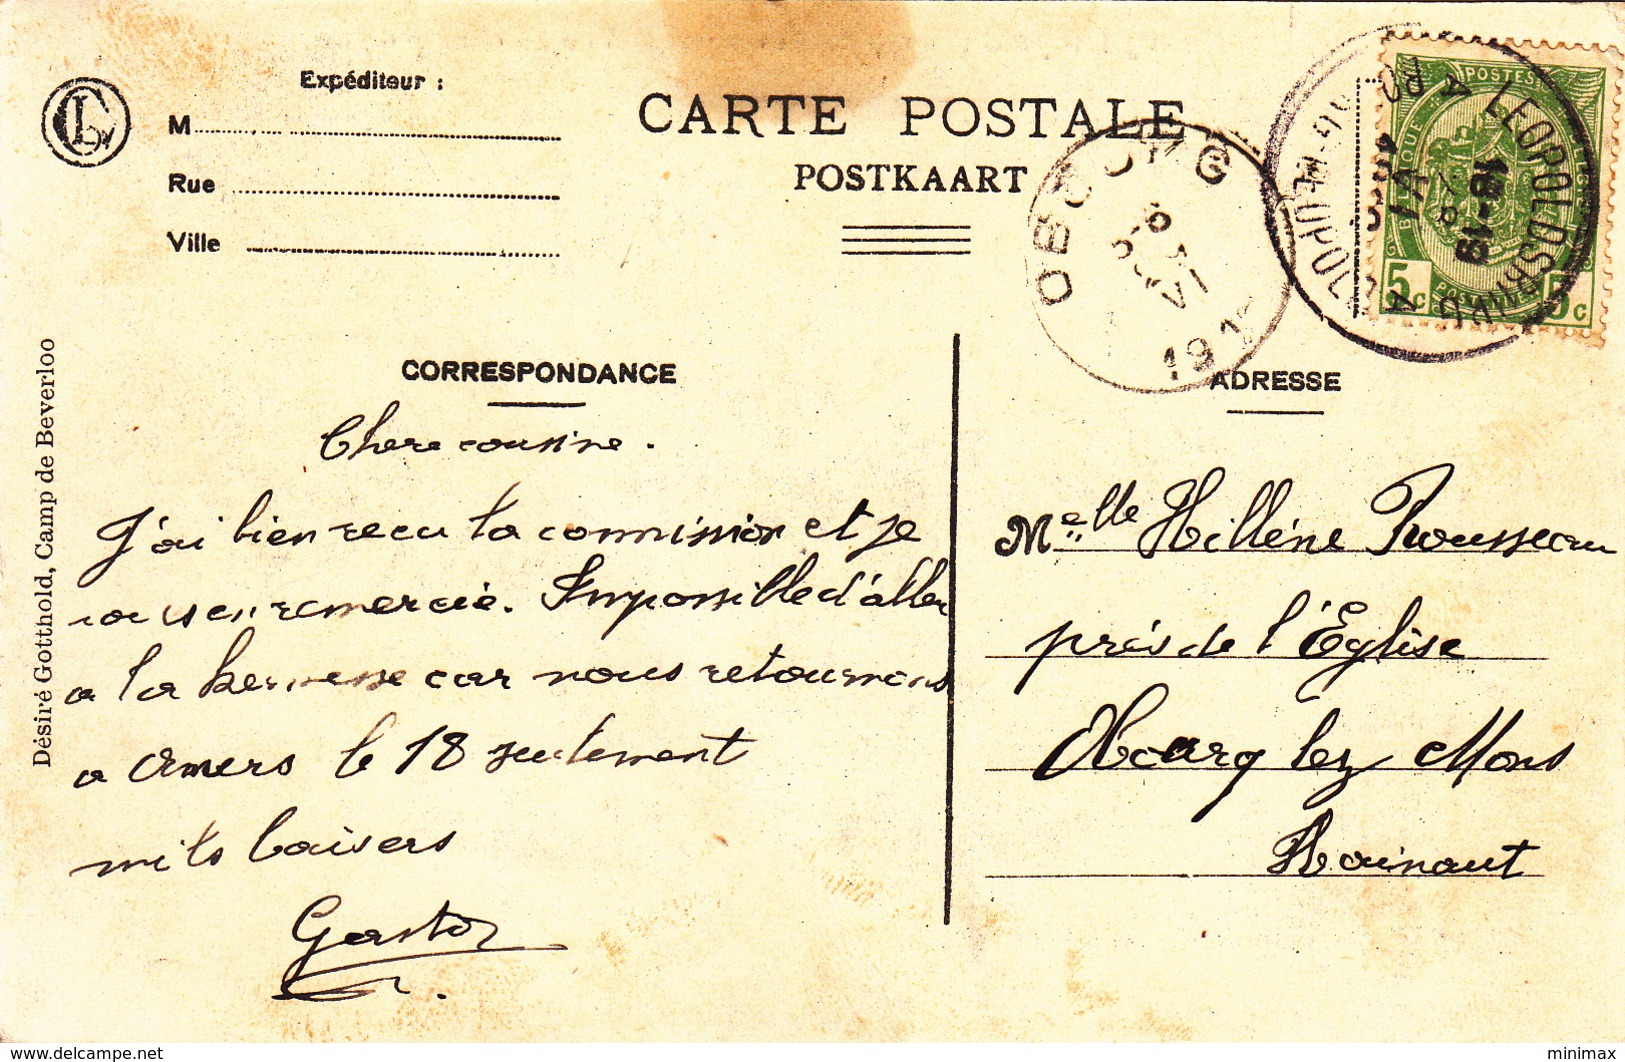 Expéditeur :
M
Rue
Ville
CARTE POSTALE
POSTKAART
POSTES
5c 5c
LEOPOLDSBURG
18-19
OBOURG
VI
CORRESPONDANCE
ADRESSE
Chere cousine.
J'ai bien recu la commission et je
vous en remercie. Impossille d'aller
a la kermesse car nous retournons
a Anvers le 18 seulement
mils baisers
Gaston
Melle Hilléne Rousseau
près de l'Église
Obourg lez Mons
Hainaut
Désiré Gotthold, Camp de Beverloo
https://www.delcampe.net
minimax